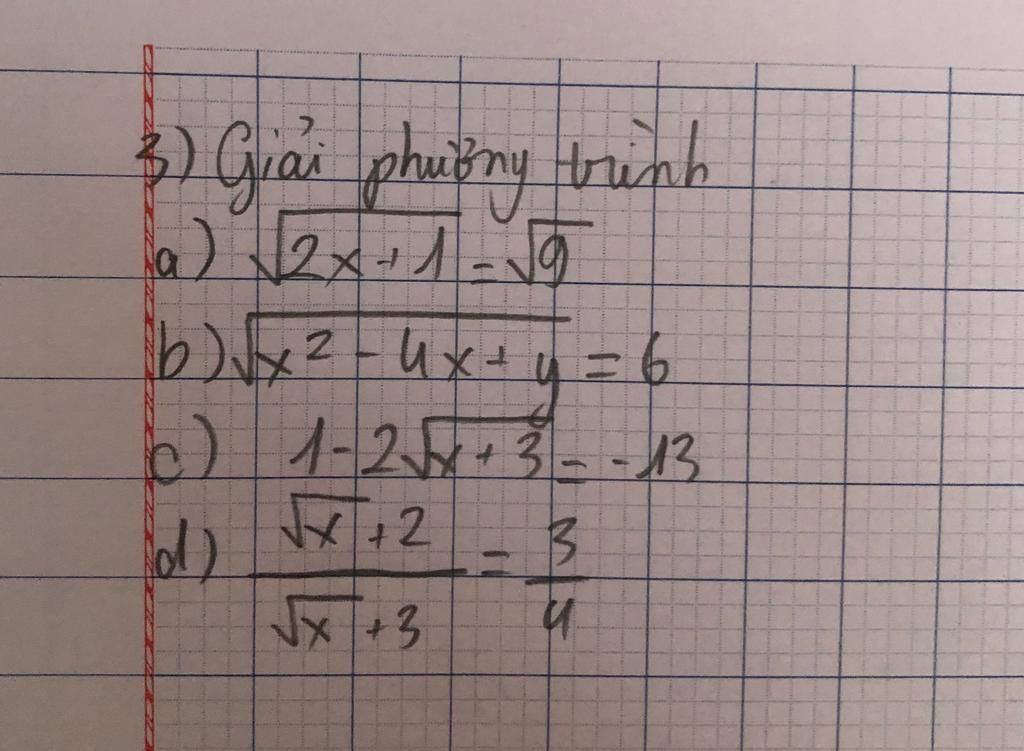 3) Giải phương trình
a) √(2x+1) = √9
b) √(x² - 4x + y) = 6
c) 1 - 2√(x+3) = -13
d) (√x + 2)/(√x + 3) = 3/4